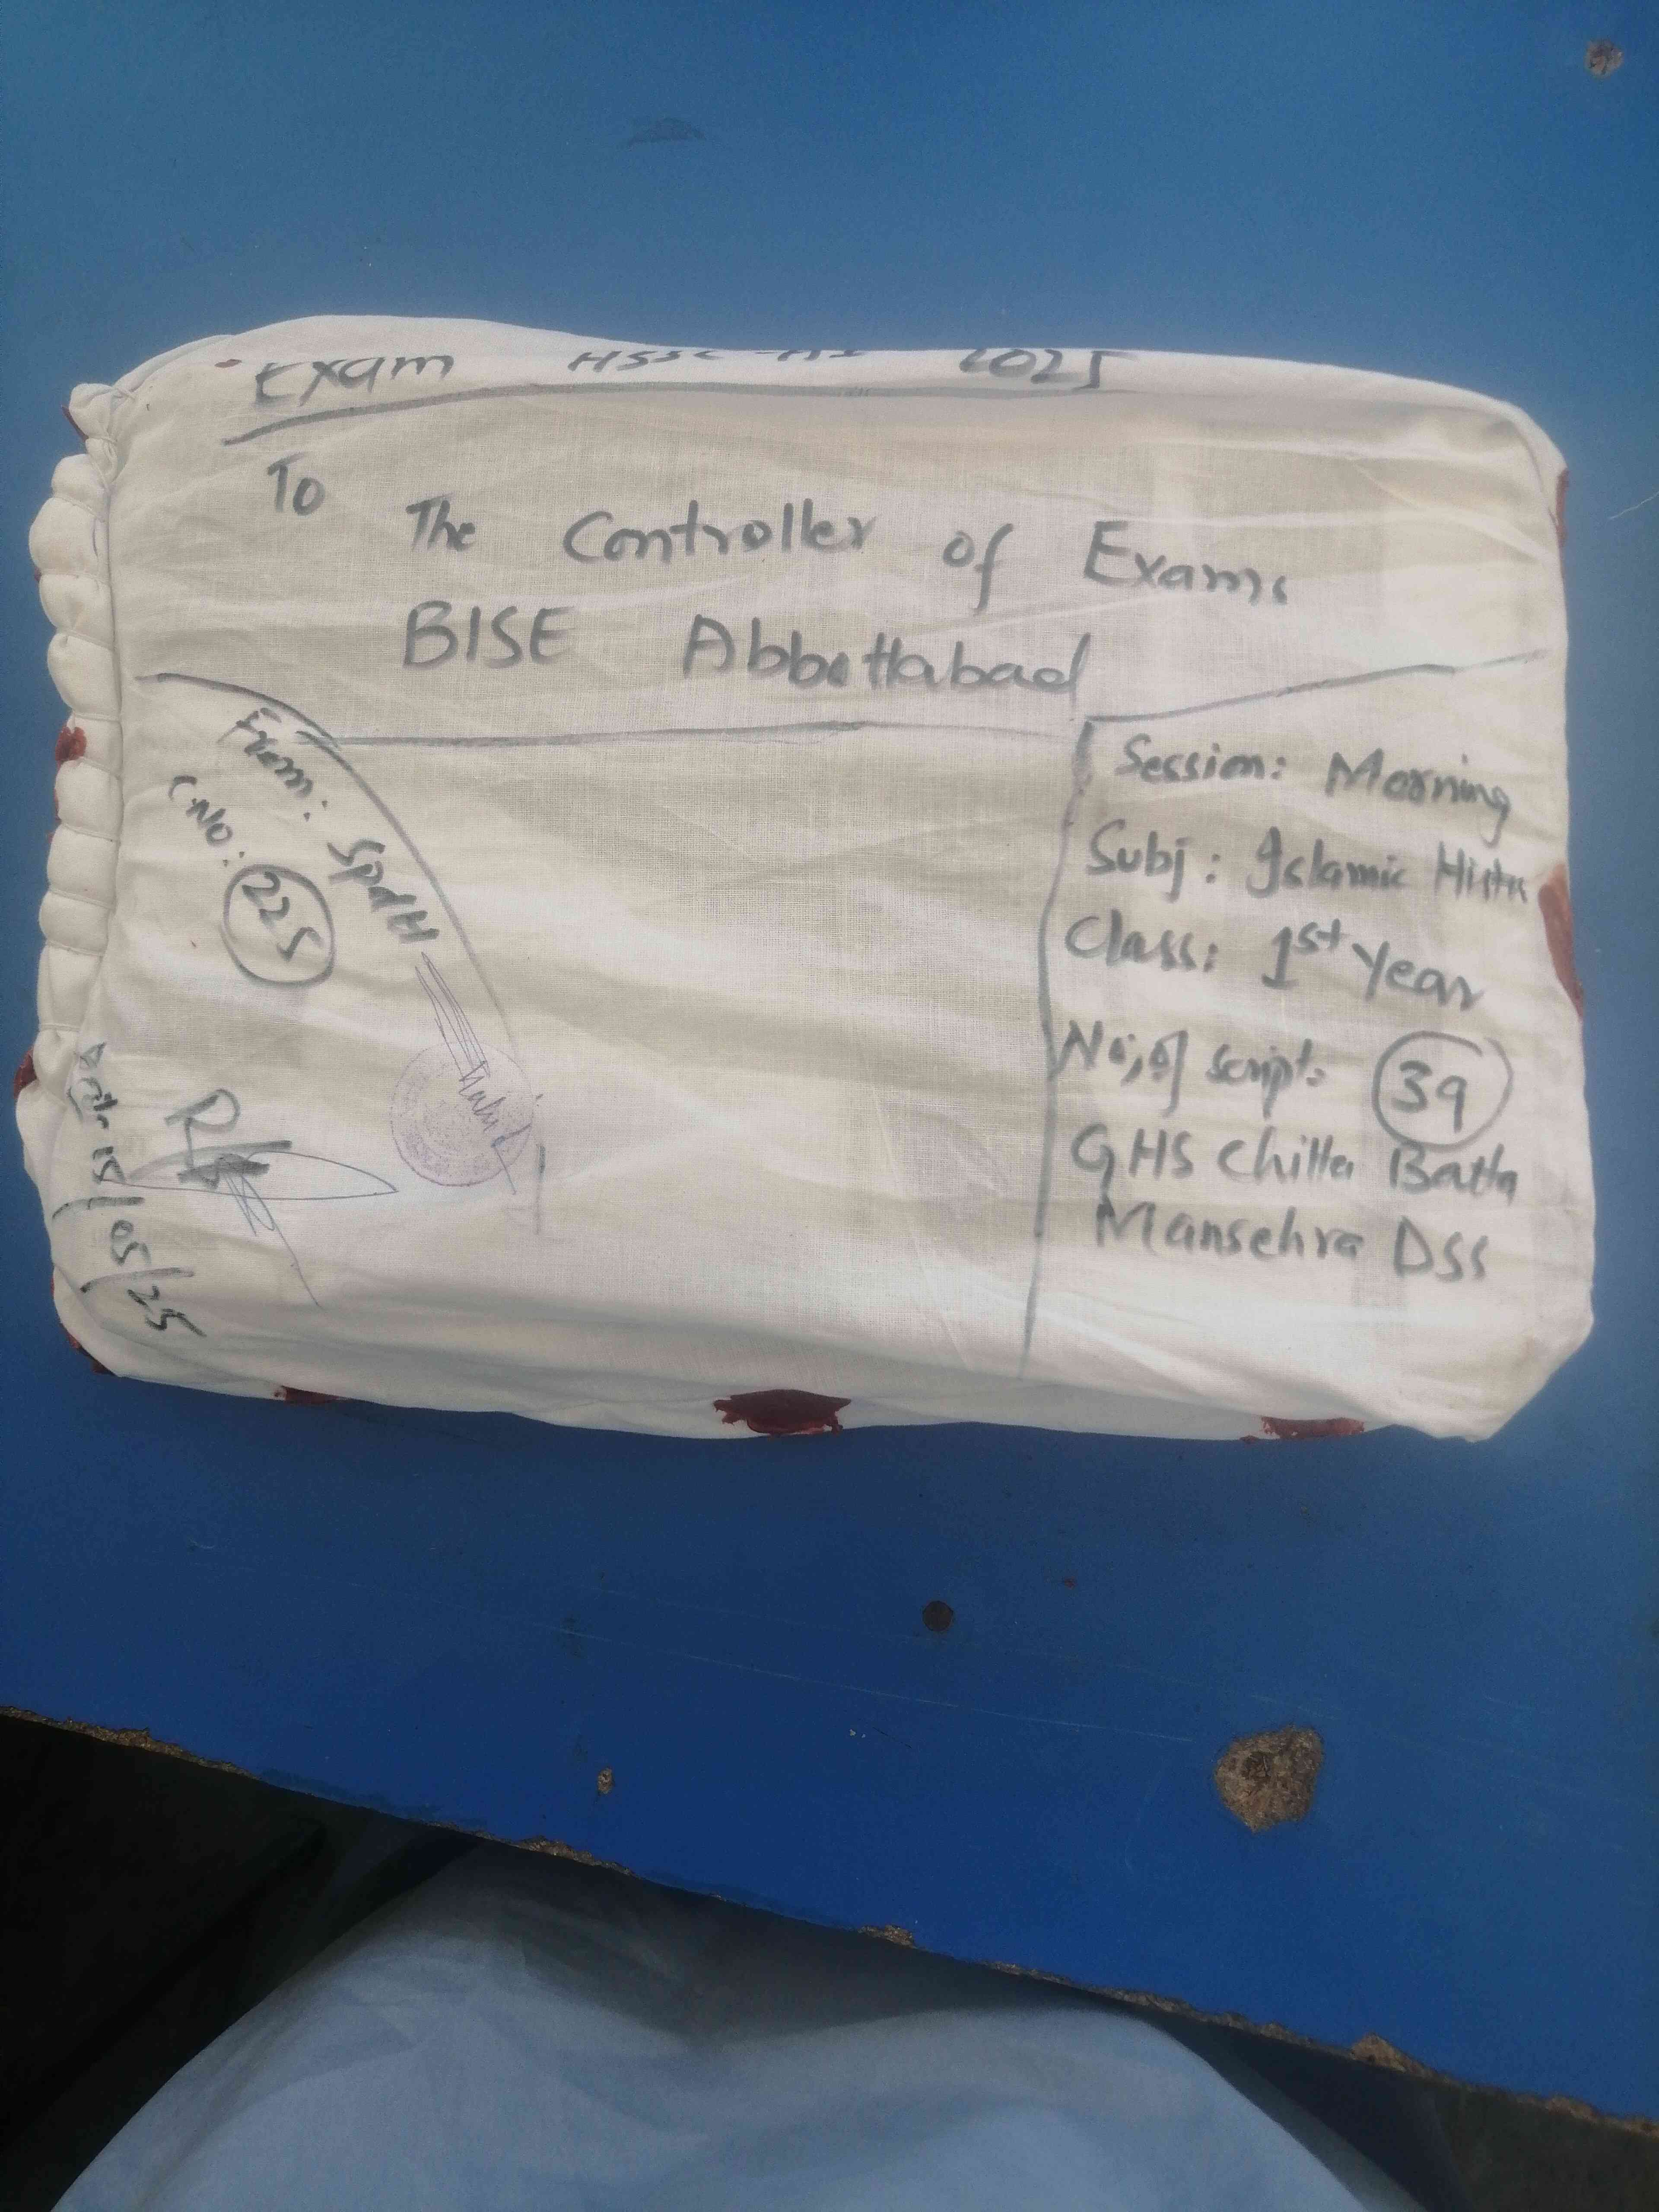 Exam HSSC-A-I 2025
To
The Controller of Exams
BISE Abbottabad
From: Spdtt
C.No: 225
Date 15/05/25
Session: Morning
Subj: Islamic Histr
Class: 1st Year
No; of scripts 39
GHS Chitta Batta
Mansehra DSS